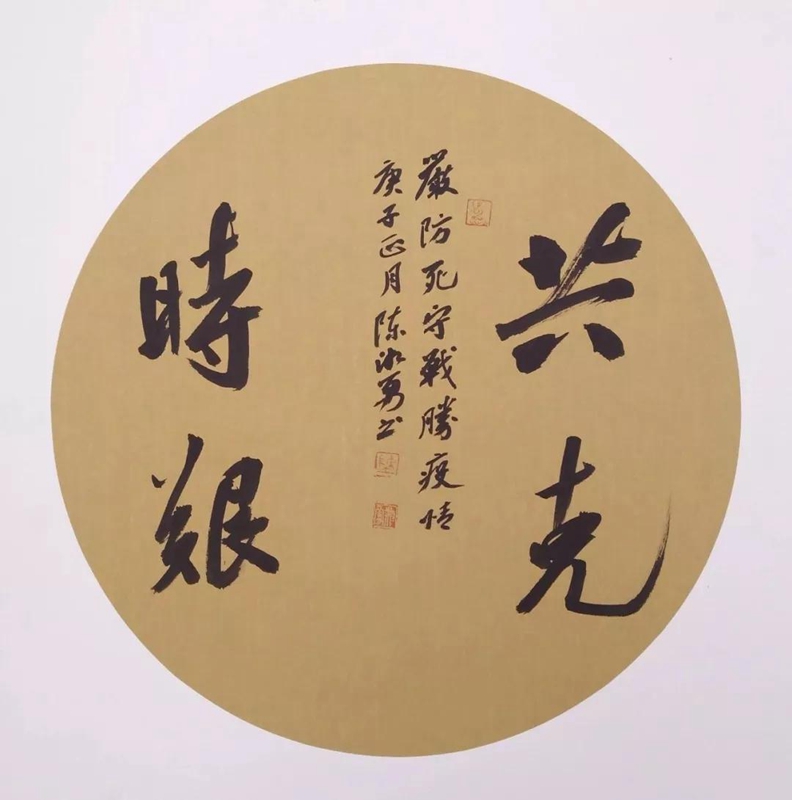 共克
嚴防死守戰勝疫情
庚子正月陈冰勇书
時艱